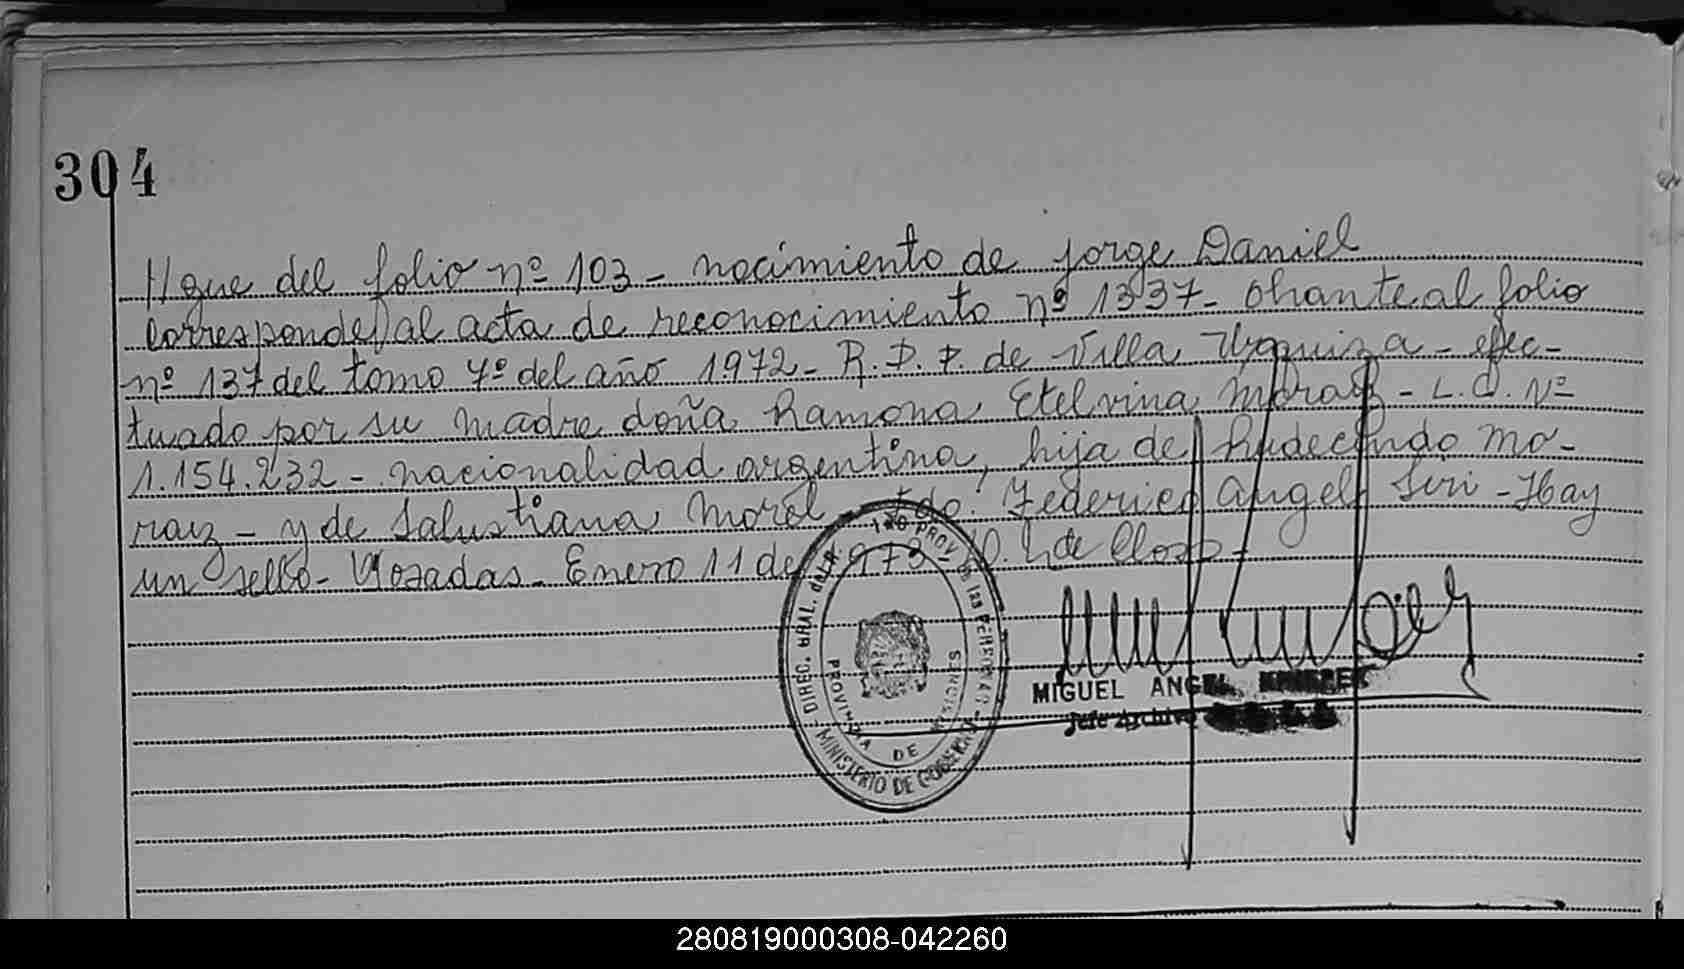 304
//gue del folio nº 103 - nacimiento de Jorge Daniel
Corresponde al acta de reconocimiento nº 1337 - obrante al folio
nº 137 del tomo 4º del año 1972 - R.P.P. de Villa Urquiza - efec-
tuado por su madre doña Ramona Etelvina Moraiz - L.C. Nº
1.154.232 - nacionalidad argentina, hija de Rudecindo Mo-
raiz - y de Salustiana Morel - fdo: Federico Angel Siri - Hay
un sello - Posadas - Enero 11 de 1973
DIREC. GRAL. del R. PROV. de las PERSONAS
MINISTERIO DE GOBIERNO
PROVINCIA DE MISIONES
MIGUEL ANGEL
Jefe Archivo
280819000308-042260